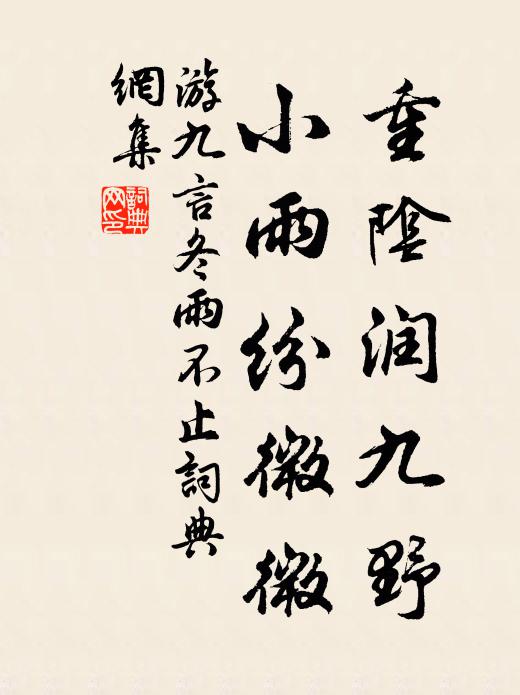 重陰润九野
小雨紛微微
游九言冬雨不止詞典
網集
詞典網印